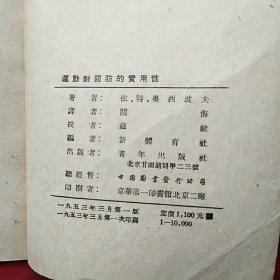 運動對國防的實用性
著者：依．特．奧西波夫
譯者：關海
校者：蘇健
編者：新體育社
出版者：青年出版社
北京甘雨胡同甲二三號
總經售：中國圖書發行公司
印刷者：京華第一印書館北京二廠
一九五三年三月第一版
一九五三年三月第一次印刷
定價1,100元
1—10,000